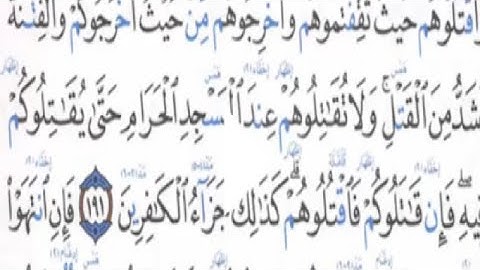 وَٱقۡتُلُوهُمۡ حَيۡثُ ثَقِفۡتُمُوهُمۡ وَأَخۡرِجُوهُم مِّنۡ حَيۡثُ أَخۡرَجُوكُمۡ وَٱلۡفِتۡنَةُ
شَدُّ مِنَ ٱلۡقَتۡلِۚ وَلَا تُقَٰتِلُوهُمۡ عِندَ ٱلۡمَسۡجِدِ ٱلۡحَرَامِ حَتَّىٰ يُقَٰتِلُوكُمۡ
فِيهِۖ فَإِن قَٰتَلُوكُمۡ فَٱقۡتُلُوهُمۡۗ كَذَٰلِكَ جَزَآءُ ٱلۡكَٰفِرِينَ ١٩١ فَإِنِ ٱنتَهَوۡاْ